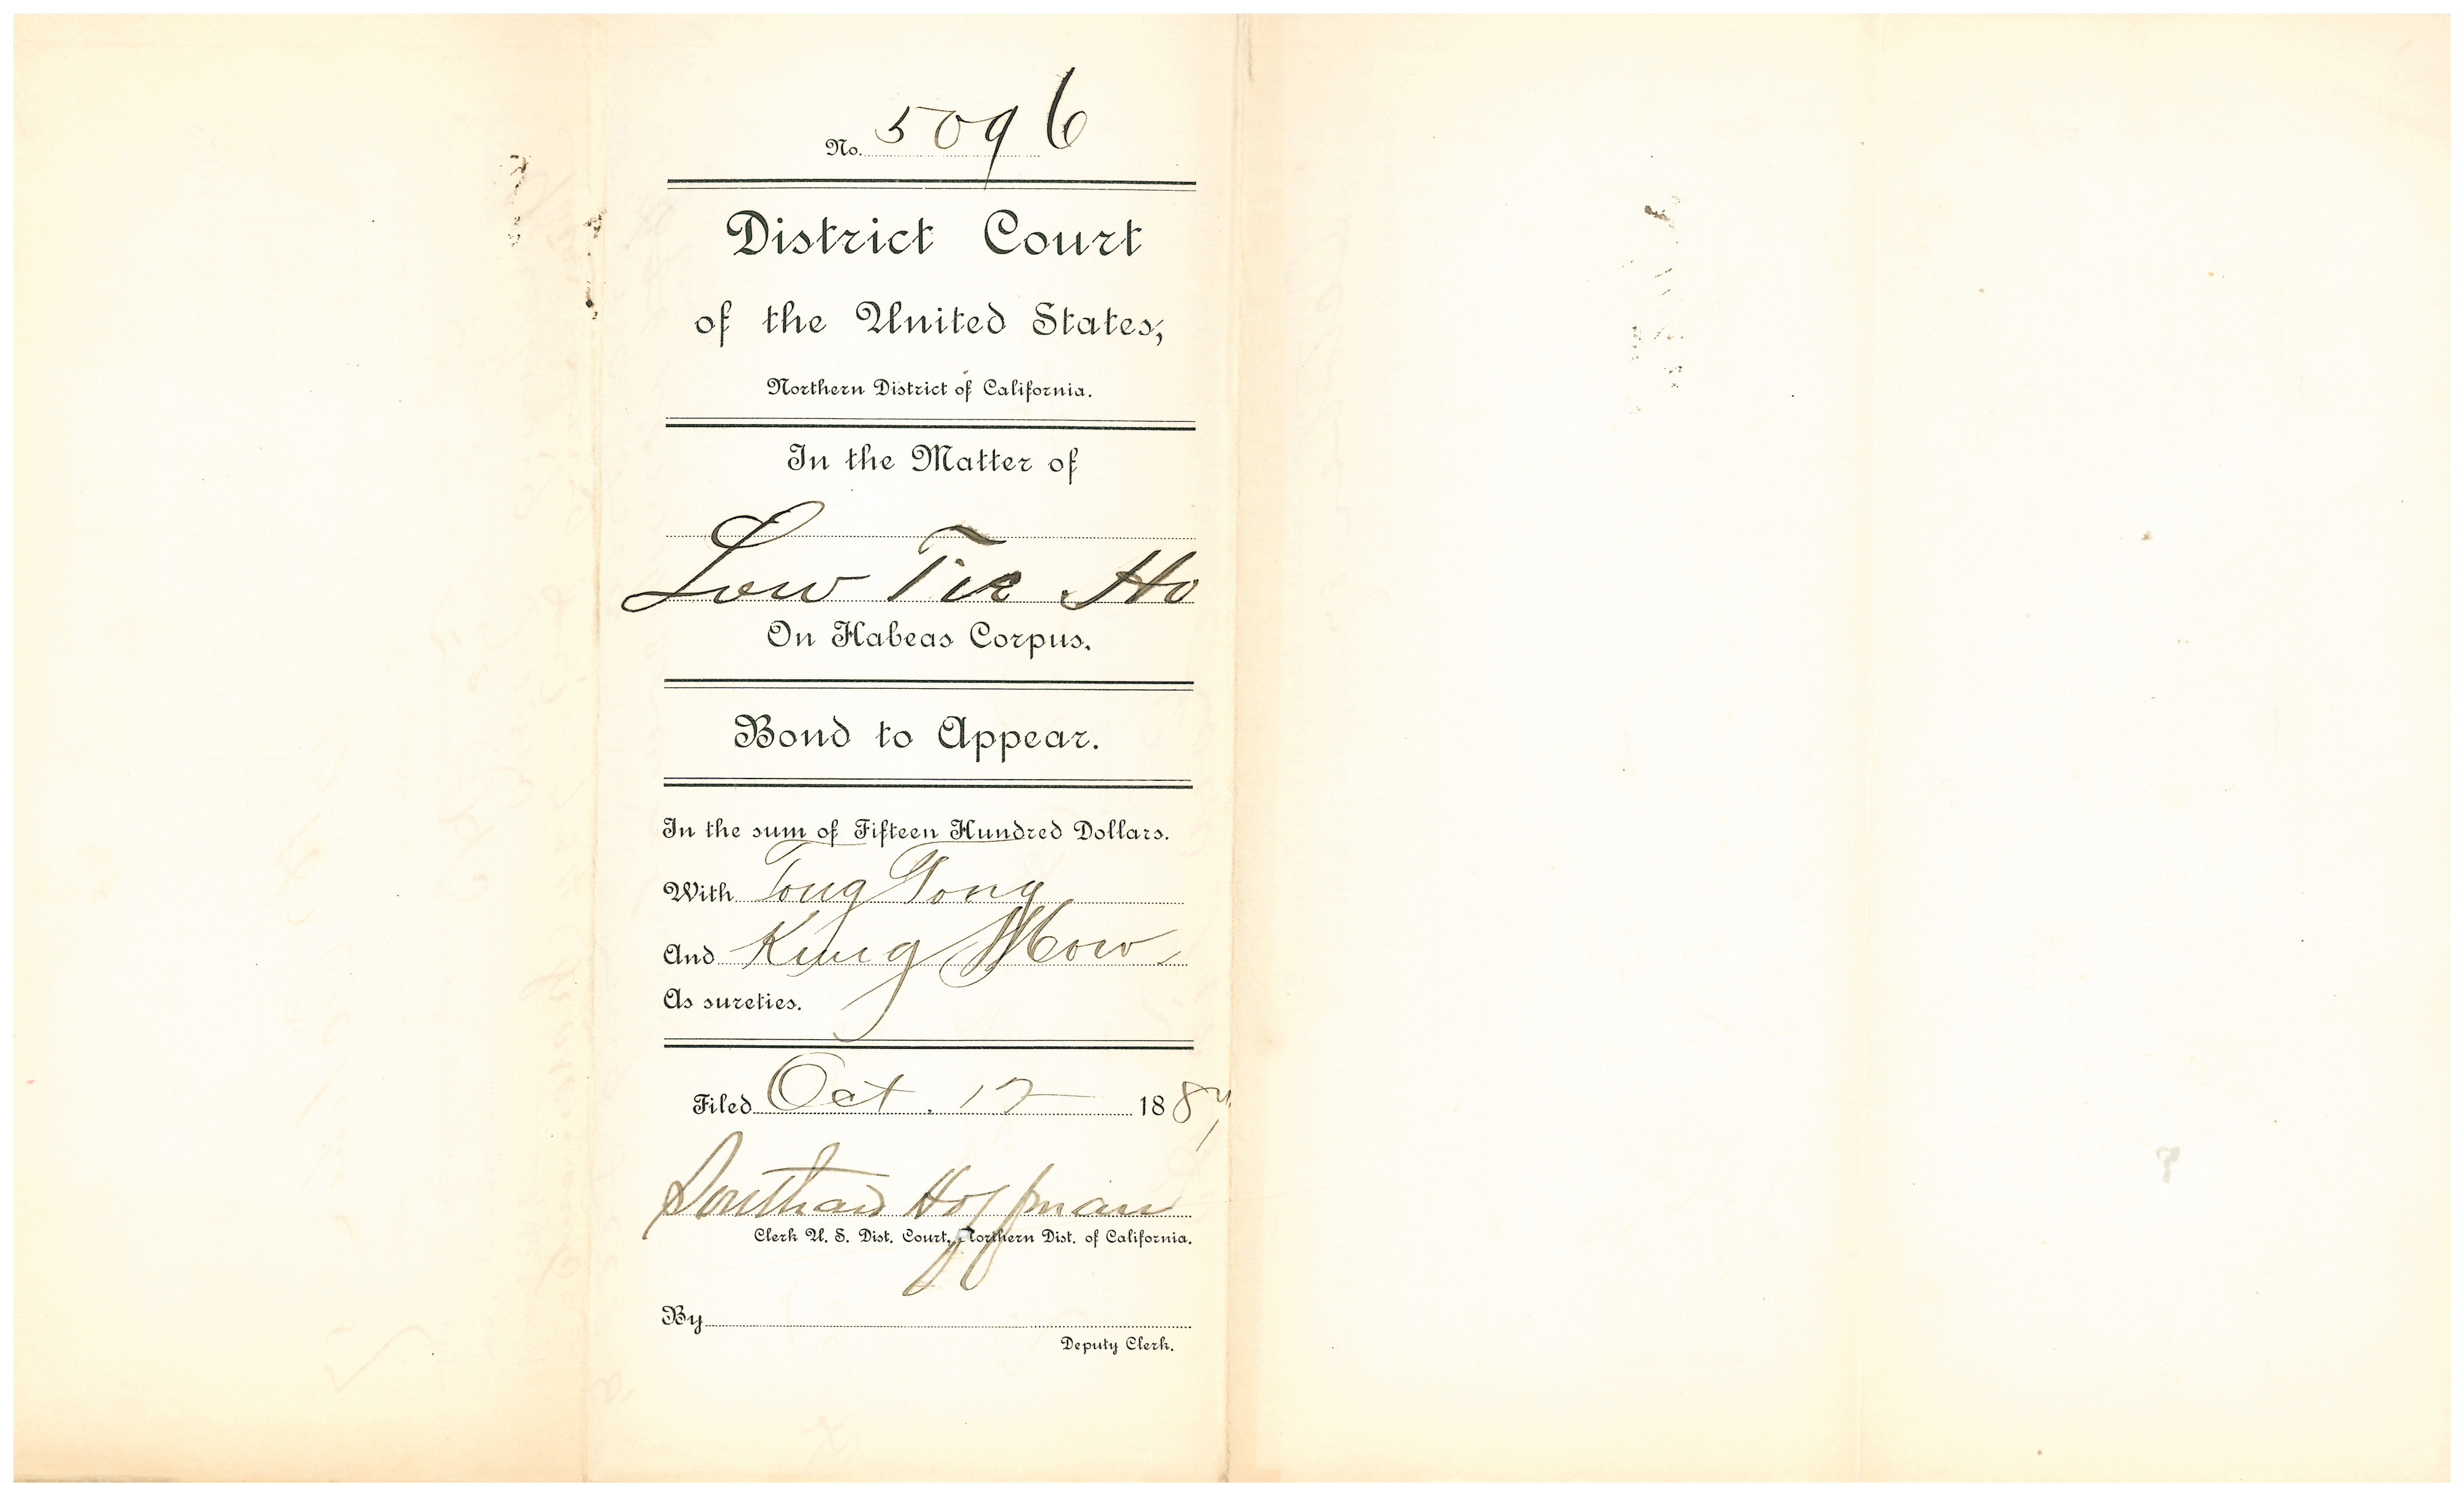 No. 5096
District Court
of the United States,
Northern District of California.
In the Matter of
Low Tie Ho
On Habeas Corpus.
Bond to Appear.
In the sum of Fifteen Hundred Dollars.
With Tong Tong
And King Mow
As sureties.
Filed Oct. 12 1887
Southard Hoffman
Clerk U. S. Dist. Court, Northern Dist. of California.
By
Deputy Clerk.